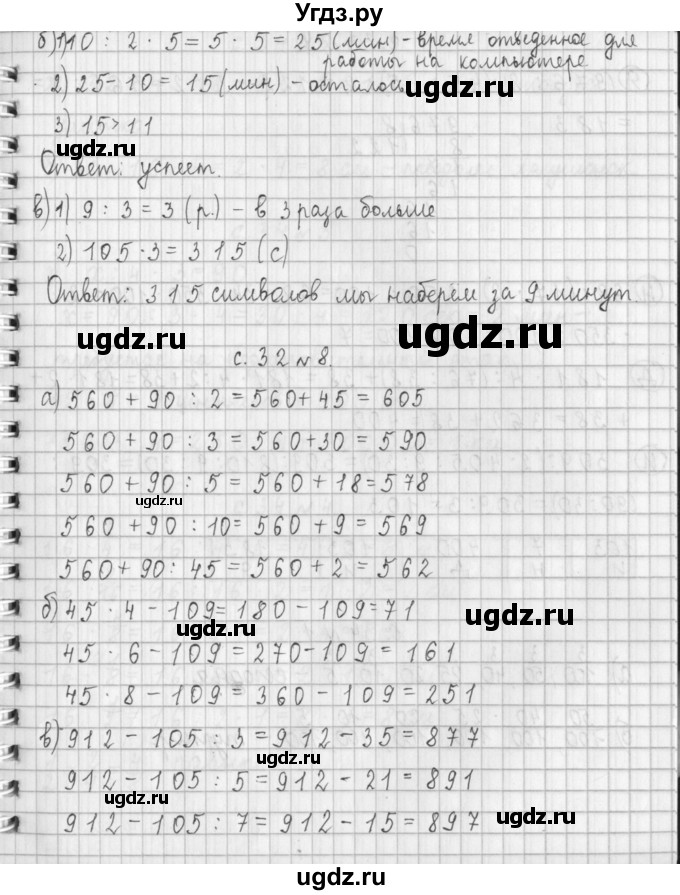 Угдз.ру
б) 1) 10 : 2 · 5 = 5 · 5 = 25 (мин) - время отведенное для
работы на компьютере
2) 25 - 10 = 15 (мин) - осталось
ugdz.ru
3) 15 > 11
ugdz.ru
Ответ: успеет.
в) 1) 9 : 3 = 3 (р.) - в 3 раза больше
2) 105 · 3 = 315 (с)
Ответ: 315 символов мы наберем за 9 минут
ugdz.ru
ugdz.ru
с. 32 № 8.
а) 560 + 90 : 2 = 560 + 45 = 605
560 + 90 : 3 = 560 + 30 = 590
560 + 90 : 5 = 560 + 18 = 578
ugdz.ru
560 + 90 : 10 = 560 + 9 = 569
560 + 90 : 45 = 560 + 2 = 562
б) 45 · 4 - 109 = 180 - 109 = 71
ugdz.ru
ugdz.ru
45 · 6 - 109 = 270 - 109 = 161
45 · 8 - 109 = 360 - 109 = 251
в) 912 - 105 : 3 = 912 - 35 = 877
ugdz.ru
912 - 105 : 5 = 912 - 21 = 891
ugdz.ru
912 - 105 : 7 = 912 - 15 = 897
ugdz.ru